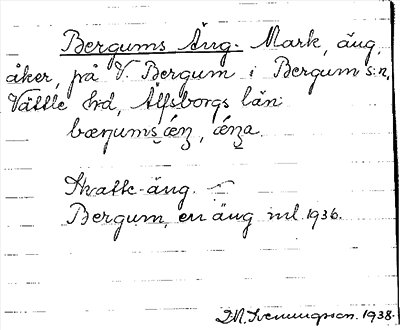 Bergums Äng. Mark, äng,
åker, på V. Bergum i Bergum s:n,
Vättle hd, Älfsborgs län
Skatte-äng.
Bergum, en äng ml. 1936.
1938.